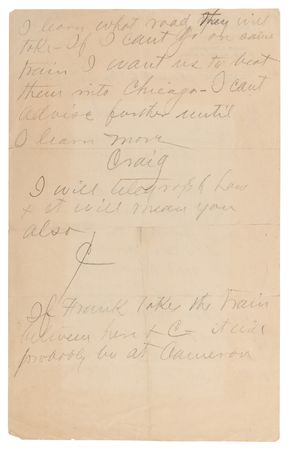 I learn what road they will
take - If I cant go on same
train I want us to beat
them into Chicago - I cant
advise further until
I learn more
Craig
I will telegraph
+ it will mean you
also
C
If Frank takes the train
between here + C - it will
probably be at Cameron